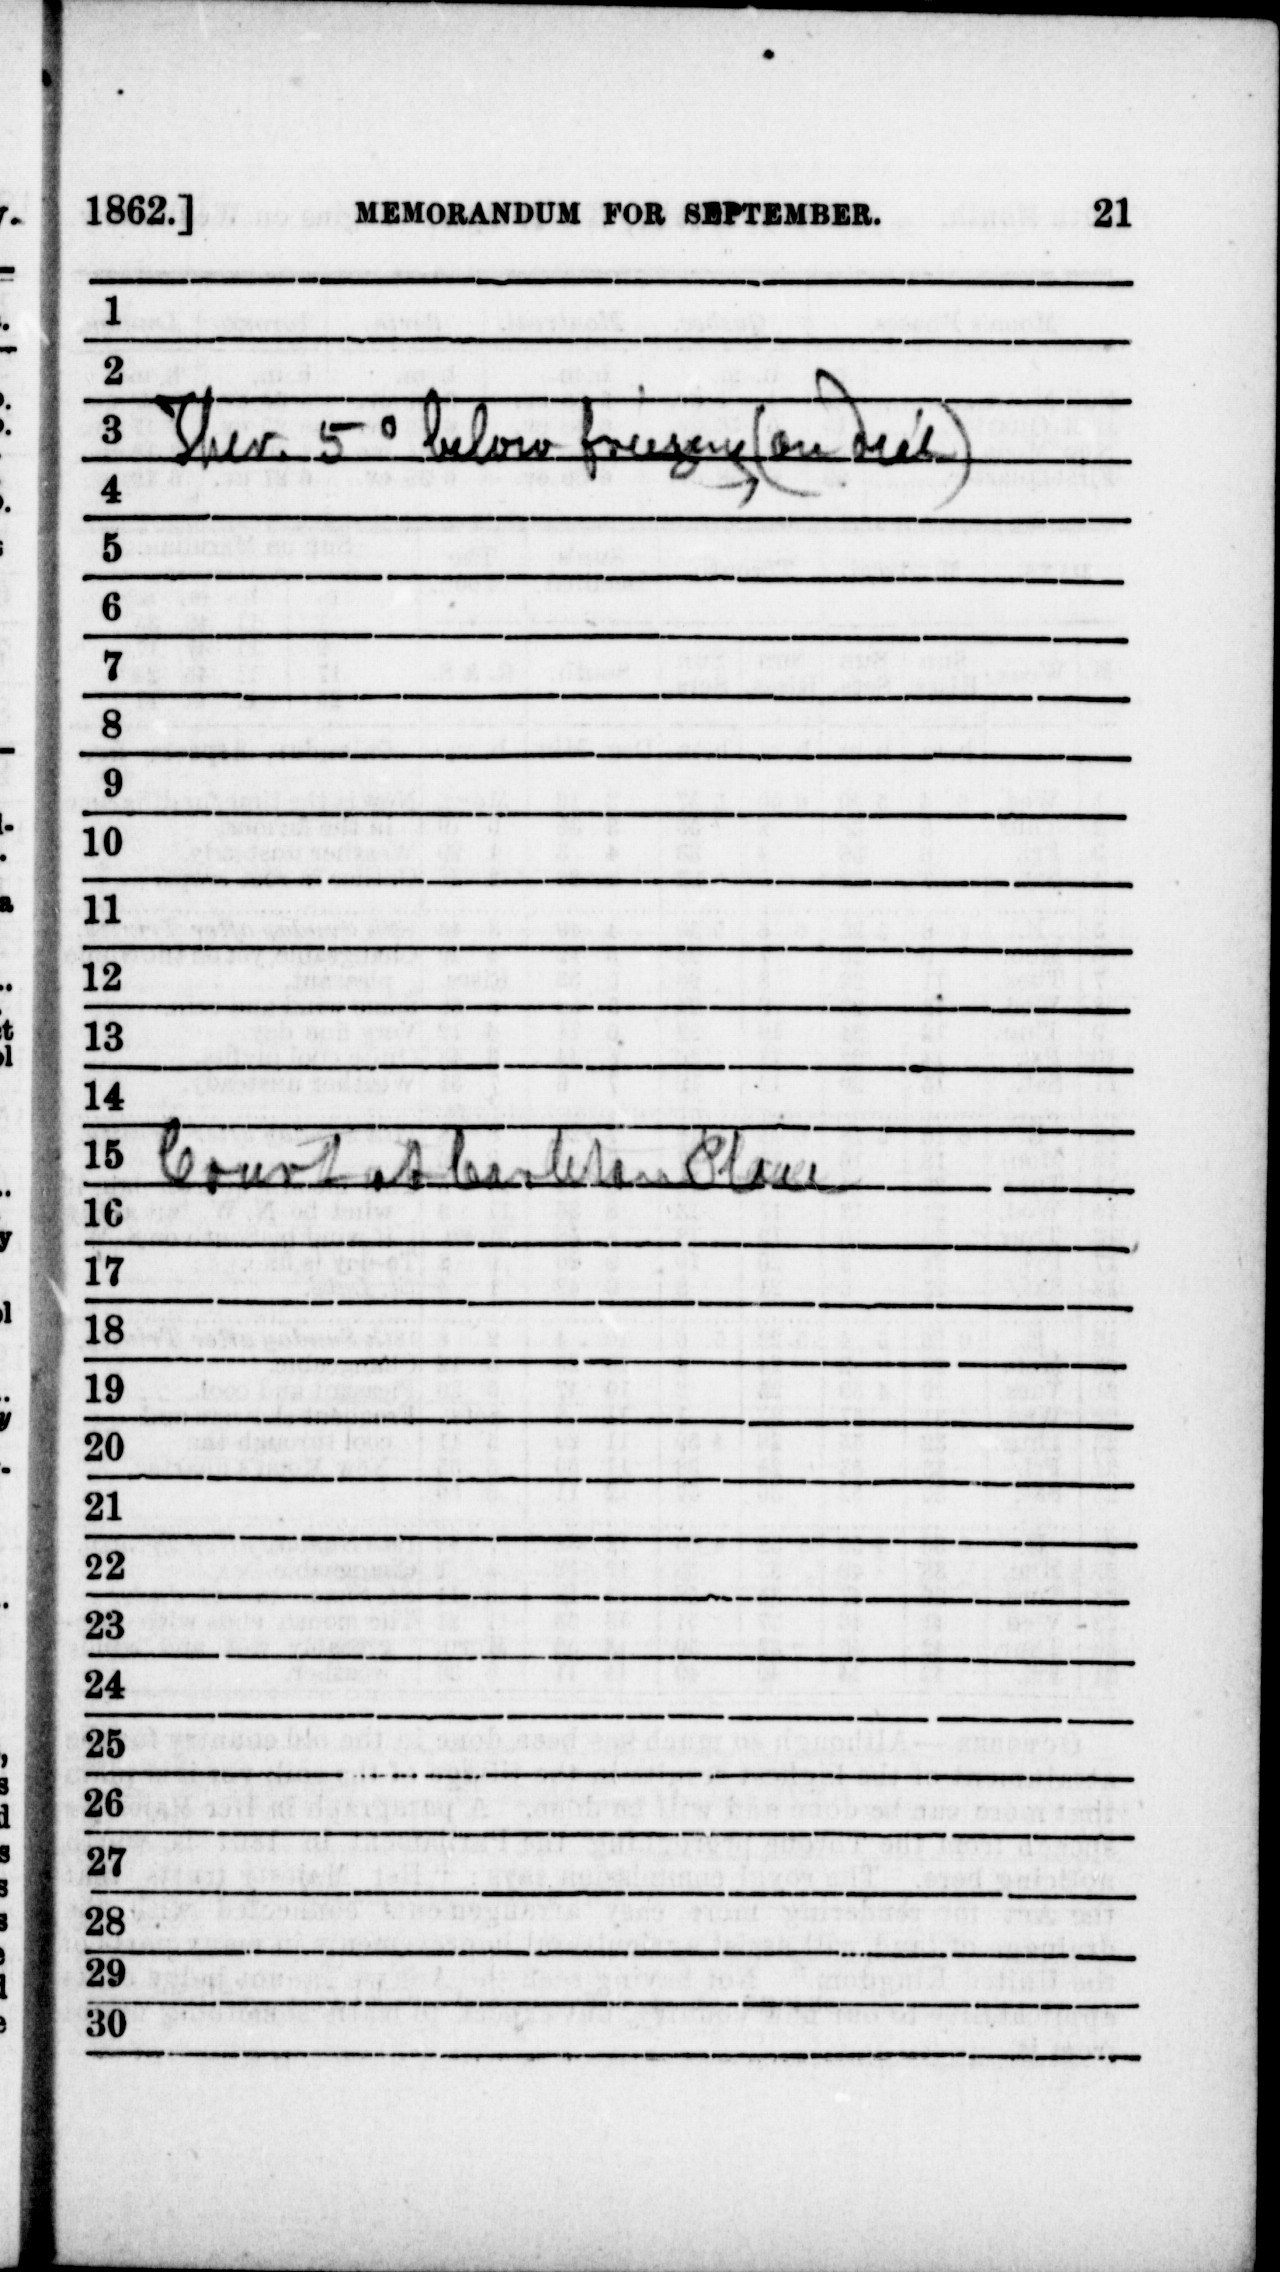 1862.] MEMORANDUM FOR SEPTEMBER. 21
1
2
3 Ther. 5° below freezing (on dit)
4
5
6
7
8
9
10
11
12
13
14
15 Court at Carleton Place
16
17
18
19
20
21
22
23
24
25
26
27
28
29
30